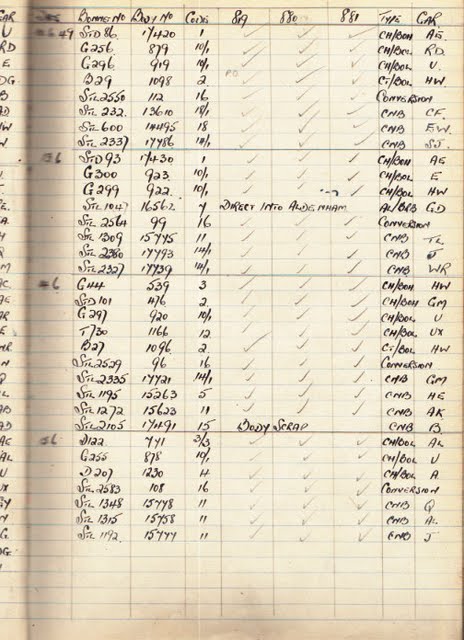 BONNET NO BODY NO CODE 879 880 881 TYPE CAR
U 6 49 STD 86 17420 1 CH/BOH AE
RD G256 879 10/1 CH/BOL RD
E G296 919 10/1 CH/BOL U
DG B29 1098 2 PO CT/BOL HW
B STL 2550 112 16 CONVERSION
D STL 232 13610 18/1 CNB CF
W STL 600 14495 18 CNB EW
W STL 2337 17786 14/1 CNB SJ
36 STD 93 17430 1 CH/BOH AE
G300 923 10/1 CH/BOL E
G299 922 10/1 CH/BOL HW
STL 1047 16562 7 DIRECT INTO ALDENHAM AL/BRB GD
A STL 2564 99 16 CONVERSION
STL 1309 15775 11 CNB TL
STL 2380 17793 14/1 CNB J
M STL 2327 17739 14/1 CNB WR
C 6 G44 539 3 CH/BOH HW
AE STD 101 476 2 CH/BOH GM
G297 920 10/1 CH/BOL U
E T/30 1166 12 CH/BOL UX
B27 1096 2 CT/BOL HW
N STL 2529 96 16 CONVERSION
Q STL 2335 17721 14/1 CNB GM
STL 1195 15263 5 CNB HE
AB STL 1272 15623 11 CNB AK
AD STL 2105 17491 15 BODY SCRAP CNB B
AE 36 D122 771 3/3 CH/BOL AL
AL G255 878 10/1 CH/BOL U
U D207 1230 4 CH/BOL A
UX STL 2583 108 16 CONVERSION
STL 1348 15778 11 CNB Q
N STL 1315 15758 11 CNB AL
G STL 1192 15777 11 CNB J
DG